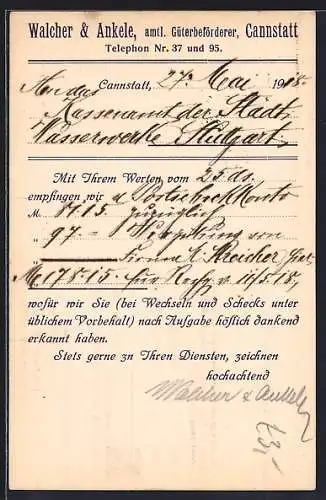 Walcher & Ankele, amtl. Güterbeförderer, Cannstatt
Telephon Nr. 37 und 95.
Cannstatt, 27. Mai 1918.
An das
Kassenamt der Städt.
Wasserwerke Stuttgart.
Mit Ihrem Werten vom 25. ds.
empfingen wir a Postscheck Konto
M. 81.15 zuzüglich
„ 97.–
Firma A. Streicher
M. 178.15 für Rechg. v. 11/5.18,
wofür wir Sie (bei Wechseln und Schecks unter
üblichem Vorbehalt) nach Aufgabe höflich dankend
erkannt haben.
Stets gerne zn Ihren Diensten, zeichnen
hochachtend
Walcher & Ankele